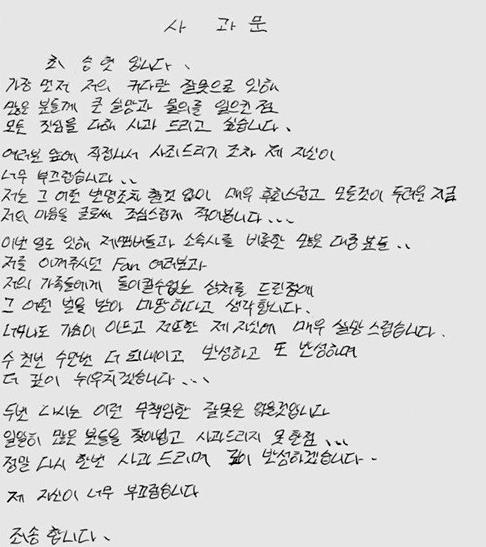 사 과 문
최 승 현 입니다.
가장 먼저 저의 커다란 잘못으로 인해
많은 분들께 큰 실망과 물의를 일으킨 점
모든 진심을 다해 사과 드리고 싶습니다.
여러분 앞에 직접나서 사죄드리기 조차 제 자신이
너무 부끄럽습니다..
저는 그 어떤 변명조차 할것 없이 매우 후회스럽고 모든것이 두려운 지금
저의 마음을 글로써 조심스럽게 적어봅니다...
이번 일로 인해 제멤버들과 소속사를 비롯한 많은 대중 분들..
저를 아껴주시던 Fan 여러분과
저의 가족들에게 돌이킬수없는 상처를 드린점에
그 어떤 벌을 받아 마땅하다고 생각합니다.
너무나도 가슴이 아프고 저또한 제 자신에 매우 실망 스럽습니다.
수 천번 수만번 더 되내이고 반성하고 또 반성하며
더 깊이 뉘우치겠습니다...
두번 다시는 이런 무책임한 잘못은 없을것입니다
일일히 많은 분들을 찾아뵙고 사과드리지 못한점...
정말 다시 한번 사과 드리며 깊이 반성하겠습니다.
제 자신이 너무 부끄럽습니다
죄송 합니다.